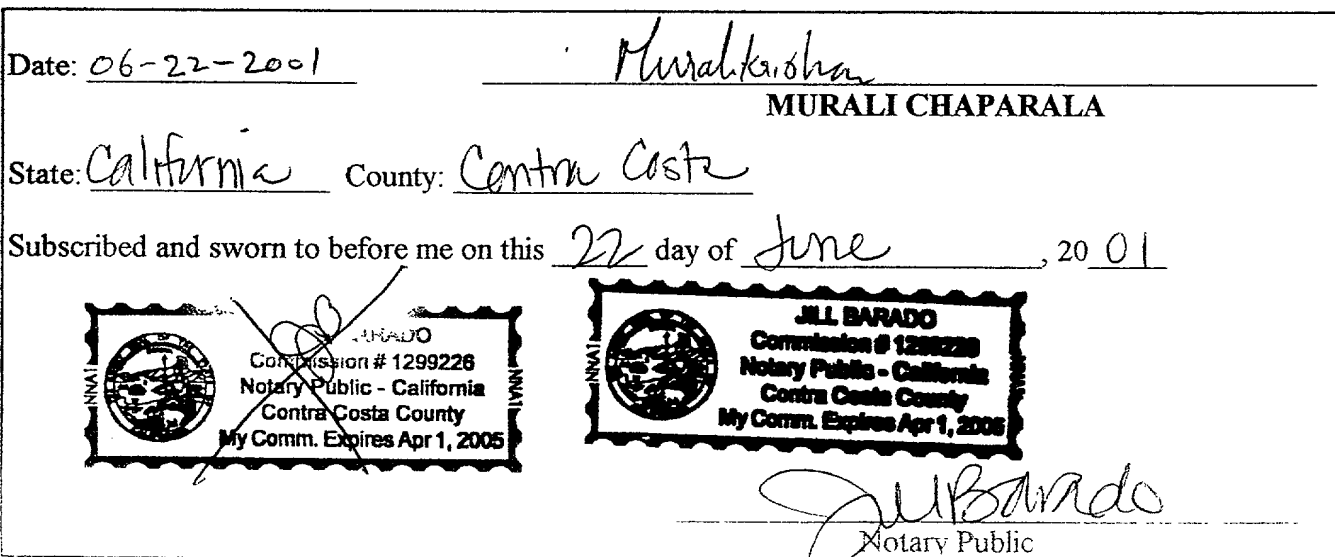 Date: 06-22-2001 Muralikrishna
MURALI CHAPARALA
State: California County: Contra Costa
Subscribed and sworn to before me on this 22 day of June, 20 01
BARADO
Commission # 1299226
Notary Public - California
Contra Costa County
My Comm. Expires Apr 1, 2005
NNA1
NNA1
JILL BARADO
Commission # 1299226
Notary Public - California
Contra Costa County
My Comm. Expires Apr 1, 2005
NNA1
NNA1
Jill Barado
Notary Public